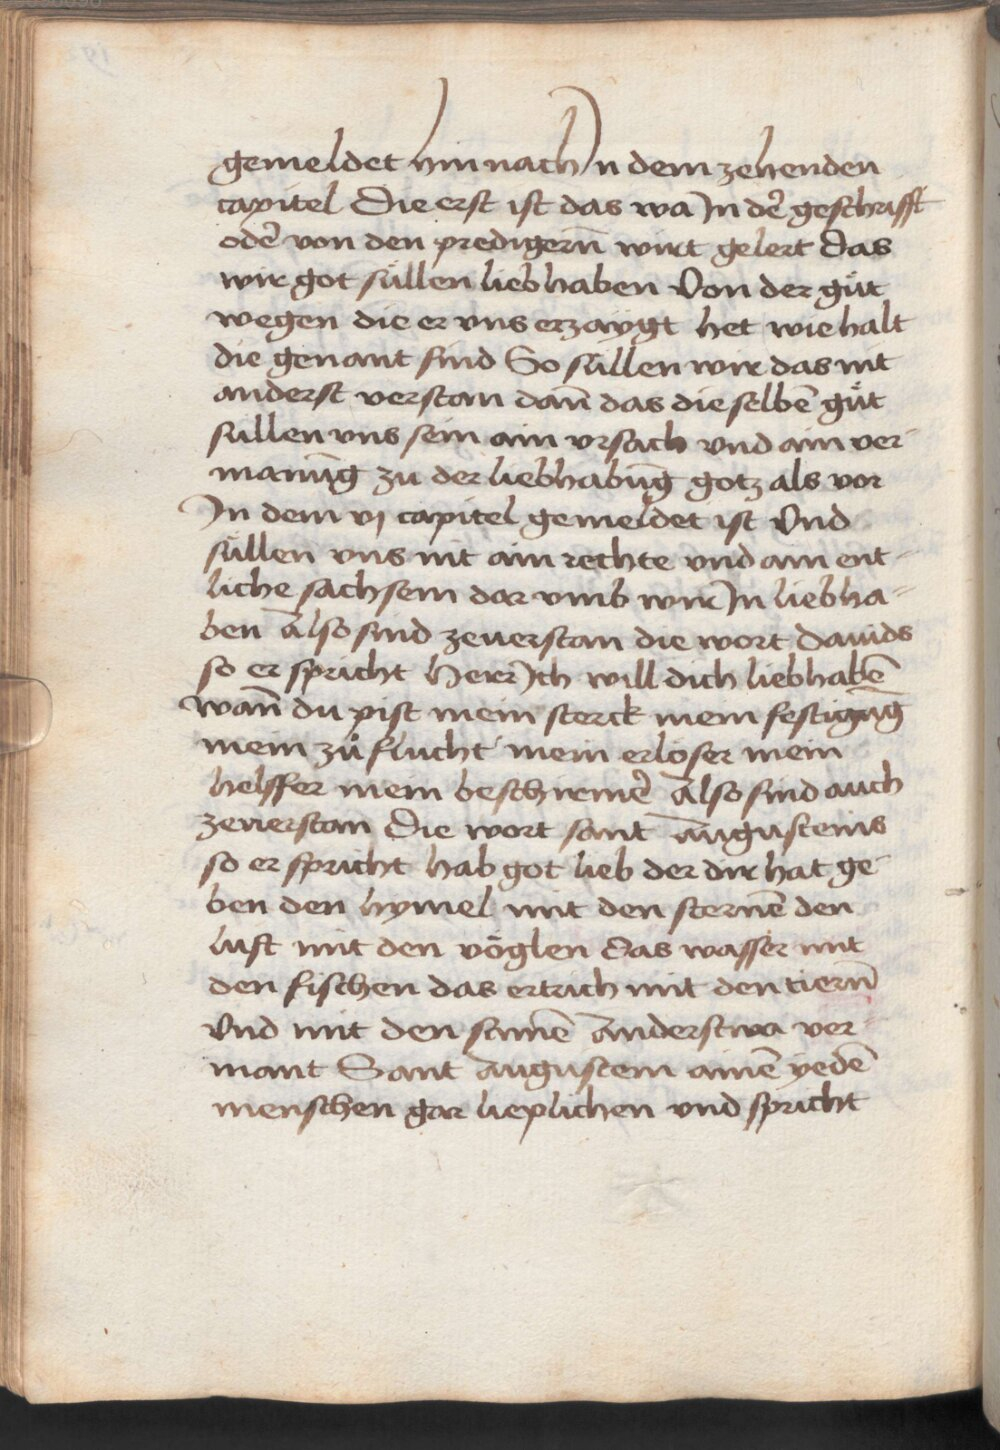 gemeldet hin nach In dem zehenden
capitel Die erst ist das wa In der̄ geschrifft
oder̄ von den predigern̄ wirt gelert Das
wir got süllen liebhaben Von der güt
wegen die er vns erzaÿgt het wie halt
die genant sind So süllen wir das nit
anderst verstan dan̄ das die selbē güt
süllen vns sein ain vrsach vnd ain ver-
manūg zu der liebhabūg gotz als vor
In dem vj capitel gemeldet ist Vnd
süllen vns nit ain rechte vnd ain ent-
liche sach sein dar vmb wir In liebha-
ben Also sind zeuerstan die wort Dauids
so er spricht Herr Ich will dich liebhabē
wan̄ du pist mein sterck mein festigūg
mein zůflucht mein erloser mein
helffer mein beschirmer̄ Also sind auch
zeuerstan Die wort sant Augusteins
so er spricht hab got lieb der dir hat ge-
ben den hymel mit den sternē den
luft mit den vöglen das wasser mit
den fischen das ertrich mit den tiern̄
Vnd mit den samē Anderstwa ver-
mant Sant Augustein ainē yedē
menschen gar lieplichen vnd spricht